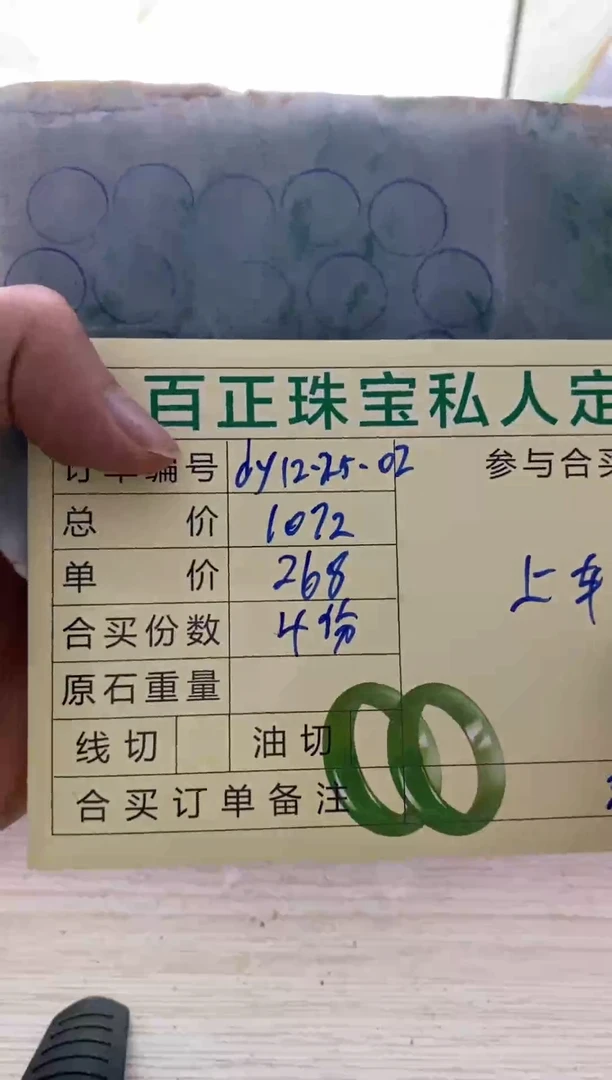 百正珠宝私人定
订单编号 dy12-25-02 参与合买
总价 1072
单价 268 上车
合买份数 4份
原石重量
线切 油切
合买订单备注